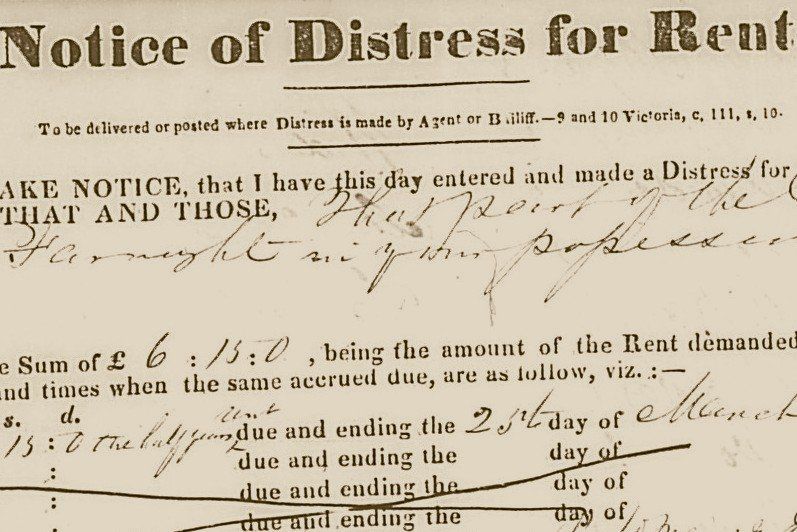 Notice of Distress for Rent
To be delivered or posted where Distress is made by Agent or Bailiff.—9 and 10 Victoria, c, 111, s, 10.
AKE NOTICE, that I have this day entered and made a Distress for
THAT AND THOSE, that part of the
Farnight in your possession
e Sum of £ 6 : 15 : 0 , being the amount of the Rent demanded
and times when the same accrued due, are as follow, viz. :—
s. d.
15 : 0 the half years rent due and ending the 25th day of March
: due and ending the day of
: due and ending the day of
due and ending the day of